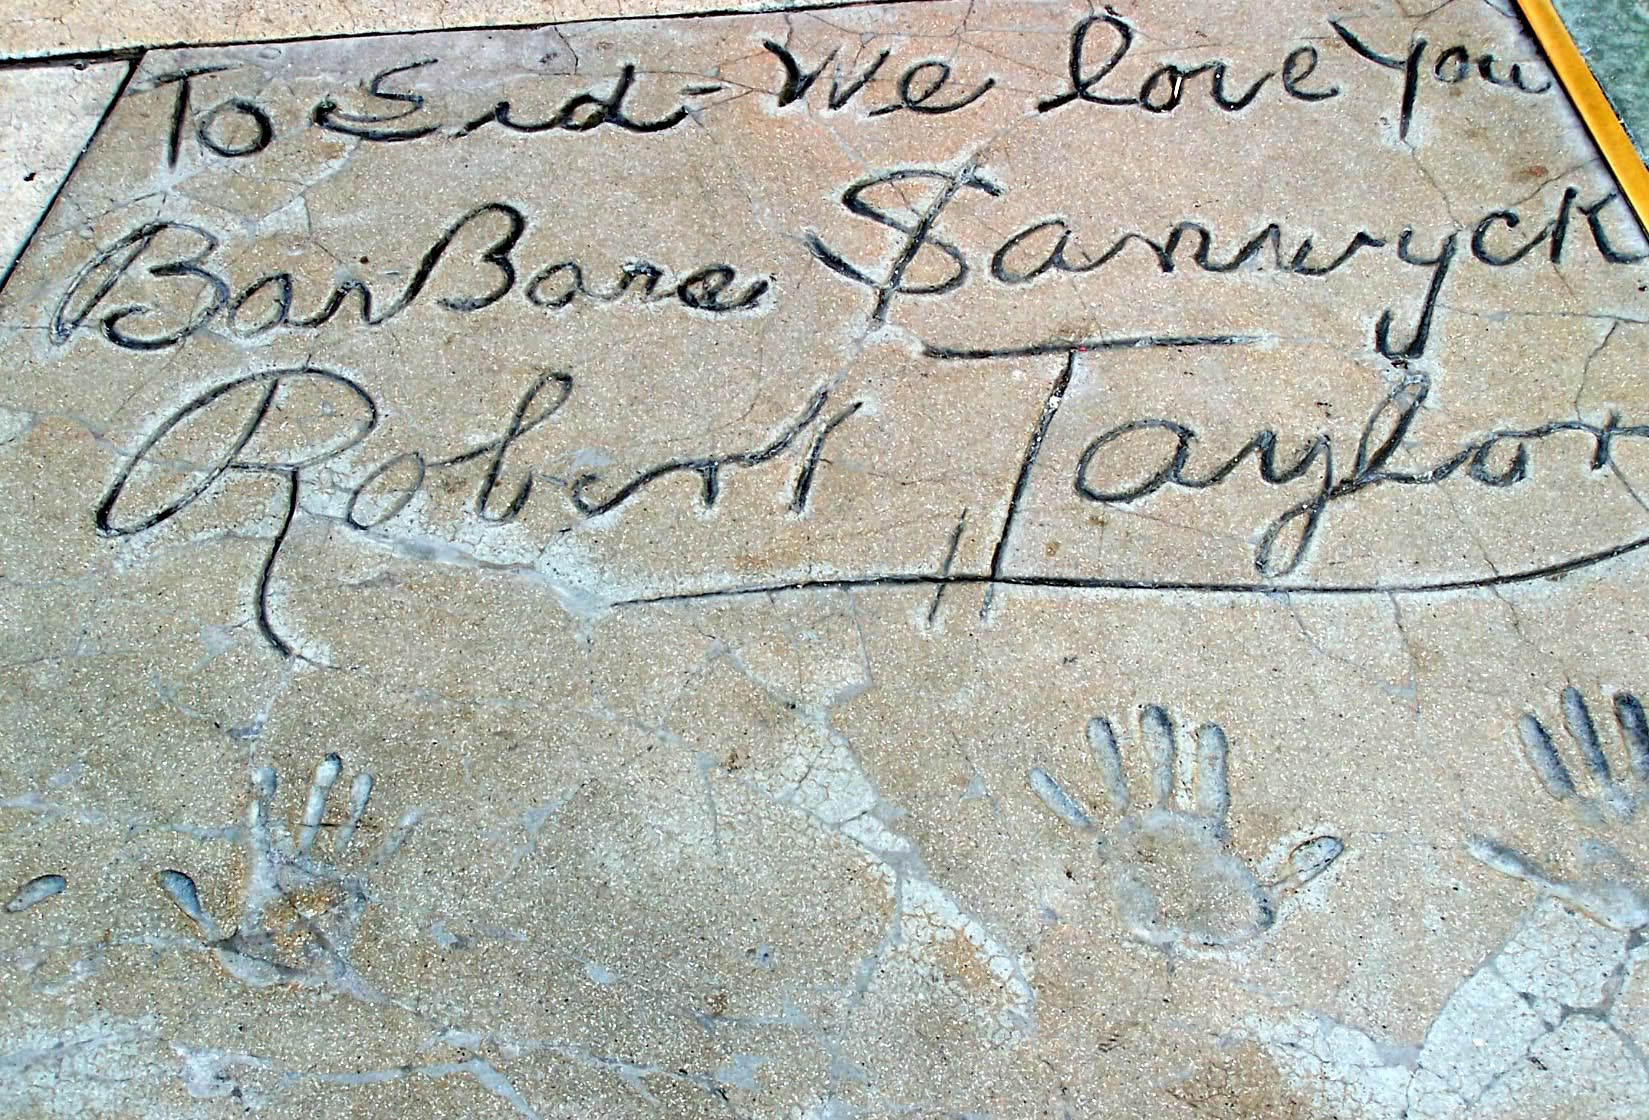 To Sid - We love You
BarBara Stanwyck
Robert Taylor